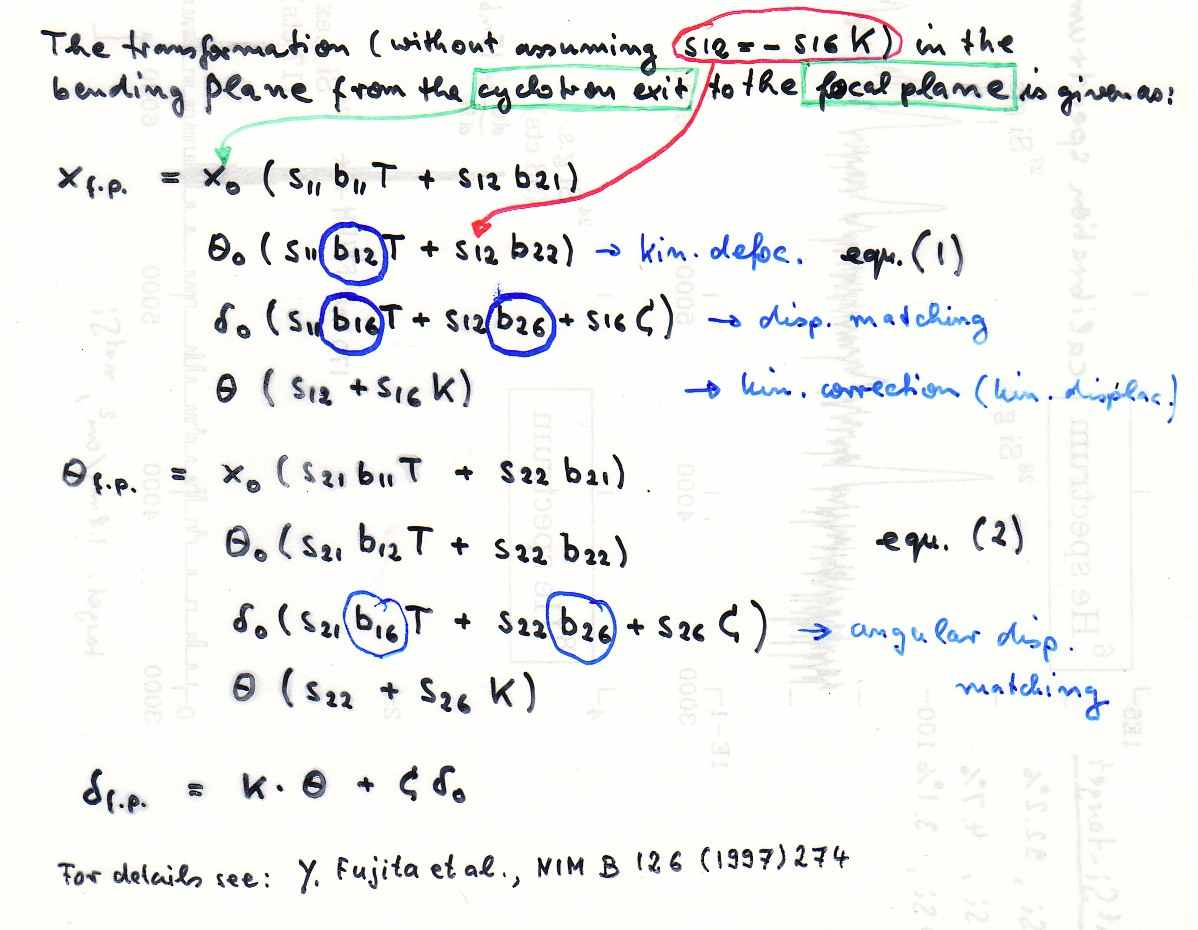 The transformation (without assuming s12 = - s16 K) in the
bending plane from the cyclotron exit to the focal plane is given as:
x f.p. = x₀ ( s₁₁ b₁₁ T + s12 b21)
θ₀ ( s₁₁ b12 T + s12 b22) → kin. defoc. equ. (1)
δ₀ ( s₁₁ b16 T + s12 b26 + s16 ζ ) → disp. matching
θ ( s12 + s16 K) → kin. correction (kin. displac.)
θ f.p. = x₀ ( s21 b11 T + s22 b21)
θ₀ ( s21 b12 T + s22 b22) equ. (2)
δ₀ ( s21 b16 T + s22 b26 + s26 ζ ) → angular disp.
matching
θ ( s22 + s26 K)
δ f.p. = K · θ + ζ δ₀
For details see: Y. Fujita et al., NIM B 126 (1997) 274